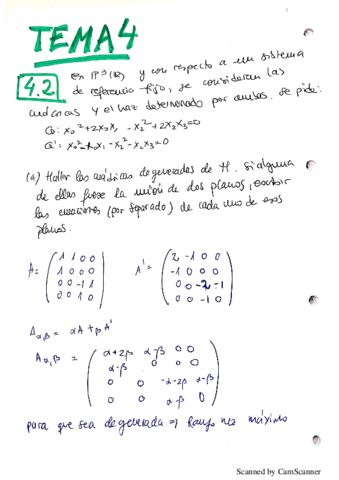 TEMA 4
4.2 en P³(R) y con respecto a un sistema
de referencia fijo, se consideran las
cuádricas y el haz determinado por ambas. Se pide:
Q: x₀²+2x₀x₁-x₂²+2x₂x₃=0
Q': x₀²-x₀x₁-x₂²-x₂x₃=0
(a) Hallar las cuádricas degeneradas de H. Si alguna
de ellas fuese la unión de dos planos, escribir
las ecuaciones (por separado) de cada uno de esos
planos.
A = ( 1 1 0 0 A' = ( 2 -1 0 0
1 0 0 0 -1 0 0 0
0 0 -1 1 0 0 -2 -1
0 0 1 0 ) 0 0 -1 0 )
Aα,β = αA + βA'
Aα,β = ( α+2β α-β 0 0
α-β 0 0 0
0 0 -α-2β α-β
0 0 α-β 0 )
para que sea degenerada ⇒ Rango no máximo
Scanned by CamScanner